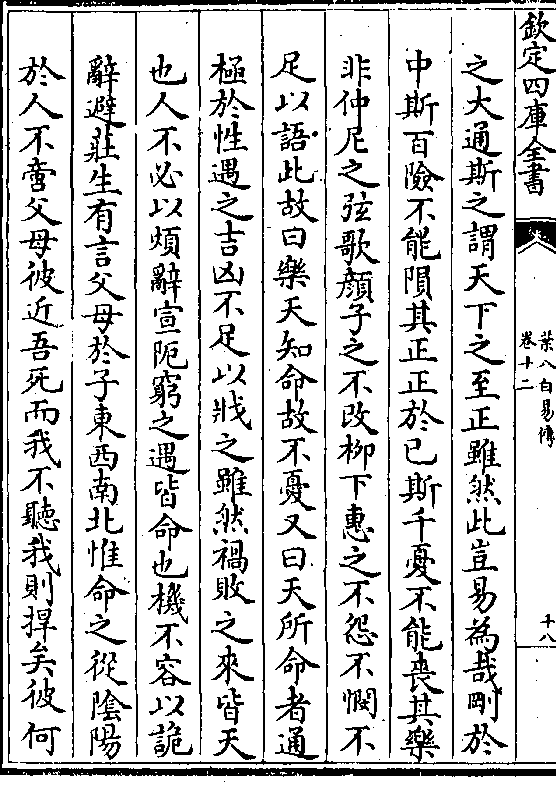 欽定四庫全書
葉八白易傳
卷十二
十八
之大通斯之謂天下之至正雖然此豈易為哉剛於
中斯百險不能隕其正正於已斯千憂不能喪其樂
非仲尼之弦歌顔子之不改柳下惠之不怨不憫不
足以語此故曰樂天知命故不憂又曰天所命者通
極於性遇之吉凶不足以戕之雖然禍敗之來皆天
也人不必以煩辭宣阨窮之遇皆命也機不容以詭
辭避莊生有言父母於子東西南北惟命之從隂陽
於人不啻父母彼近吾死而我不聽我則捍矣彼何